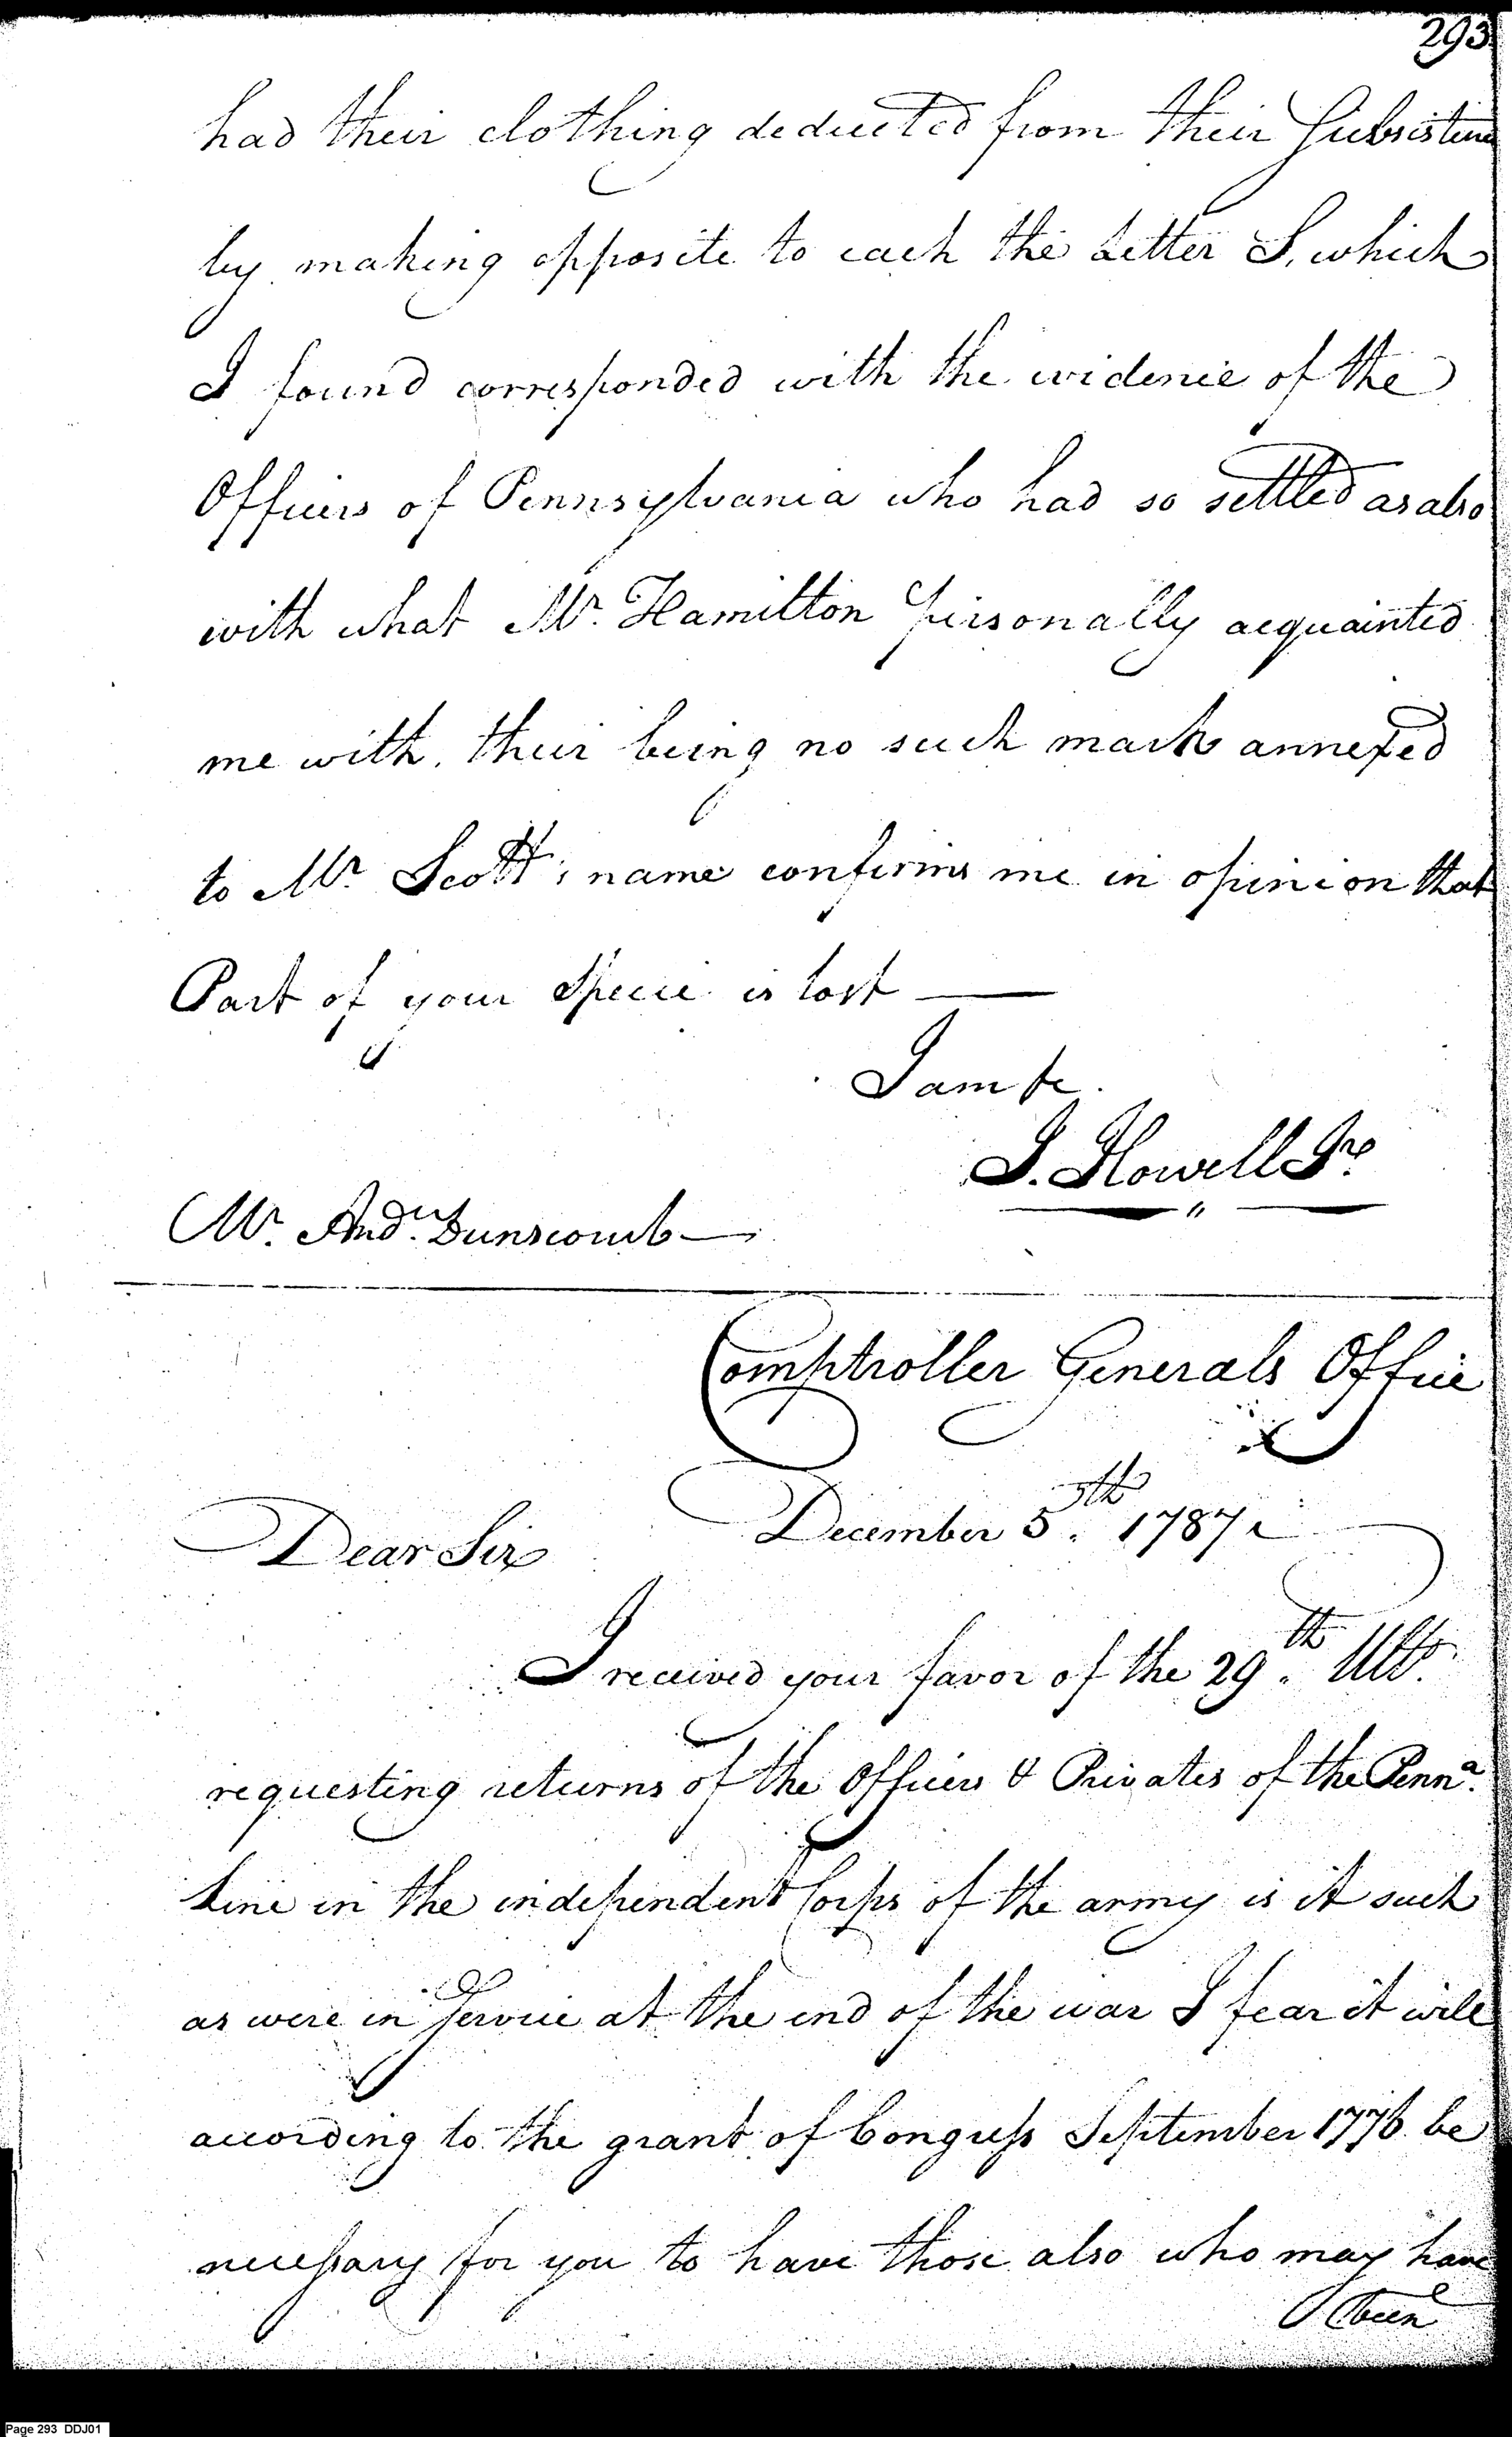 293
had their clothing deducted from their Subsistence
by making opposite to each the Letter S, which
I found corresponded with the evidence of the
Officers of Pennsylvania who had so settled as also
with what Mr. Hamilton personally acquainted
me with. their being no such mark annexed
to Mr. Scott's name confirms me in opinion that
Part of your Specie is lost —
I am &c.
J. Howell Jr.
Mr. Andw. Dunscomb —
Comptroller Generals Office
December 5th. 1787
Dear Sir
I received your favor of the 29th. Ulto.
requesting returns of the Officers & Privates of the Penna.
Line in the independent Corps of the army is it such
as were in Service at the end of the war I fear it will
according to the grant of Congress September 1776 be
necessary for you to have those also who may have
been
Page 293 DDJ01